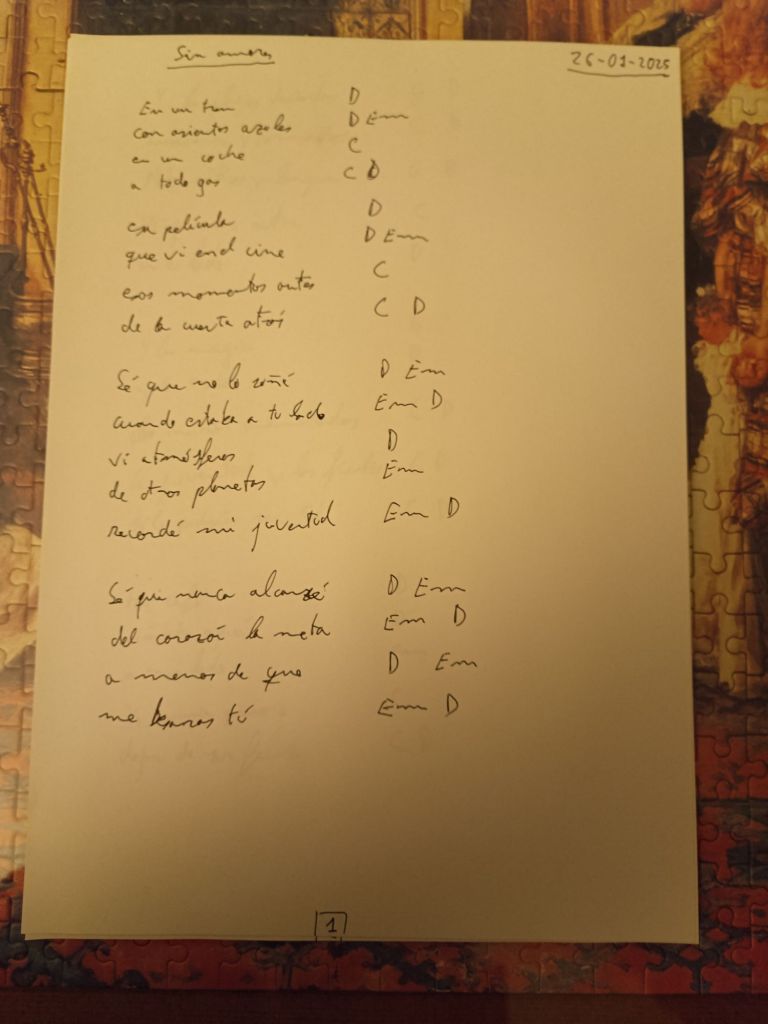 Sin amores 26-01-2025
En un tren D
con asientos azules D Em
en un coche C
a todo gas C D
esa película D
que vi en el cine D Em
esos momentos antes C
de la cuenta atrás C D
Sé que no lo soñé D Em
cuando estaba a tu lado Em D
vi atmósferas D
de otros planetas Em
recordé mi juventud Em D
Sé que nunca alcanzé D Em
del corazón la meta Em D
a menos de que D Em
me tú Em D
1